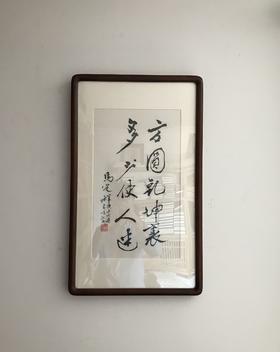 方圓乾坤裏
多少使人迷